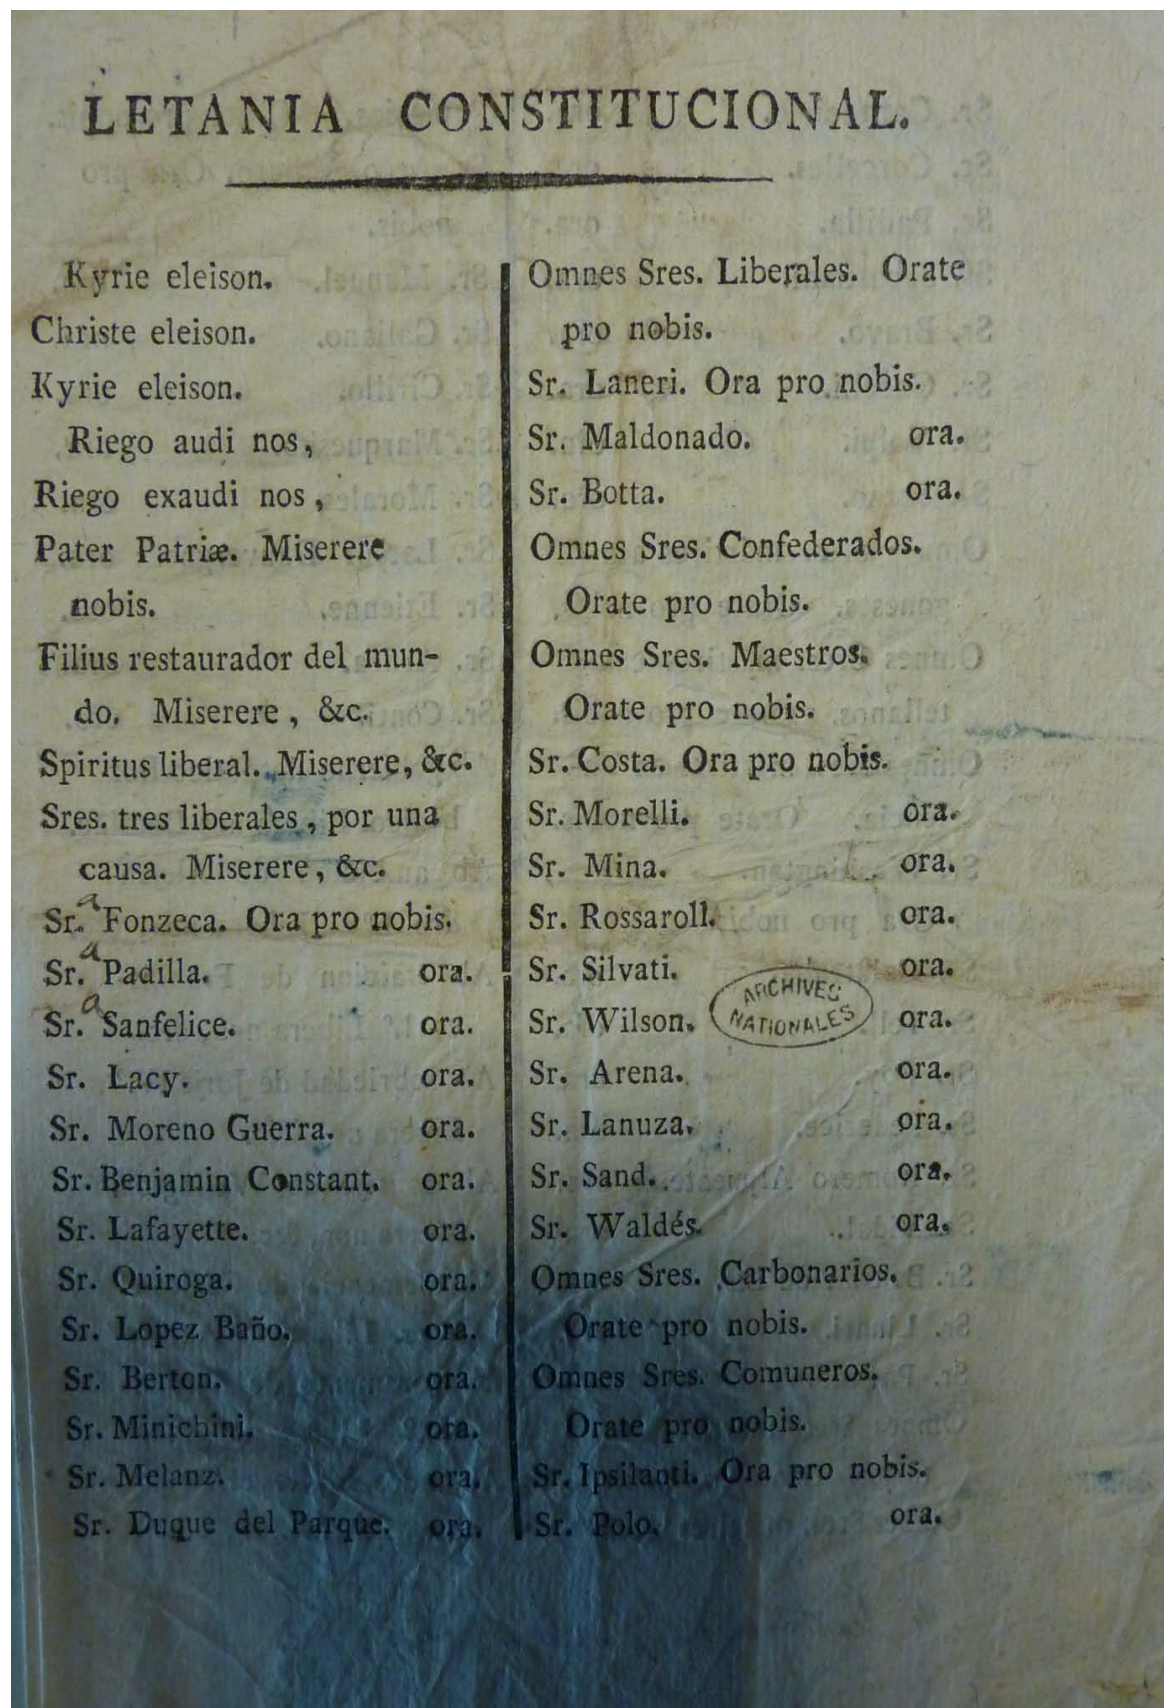 LETANIA CONSTITUCIONAL.
Kyrie eleison.
Christe eleison.
Kyrie eleison.
Riego audi nos,
Riego exaudi nos,
Pater Patriæ. Miserere
nobis.
Filius restaurador del mun-
do. Miserere, &c.
Spiritus liberal. Miserere, &c.
Sres. tres liberales, por una
causa. Miserere, &c.
Sr.a Fonzeca. Ora pro nobis.
Sr.a Padilla. ora.
Sr.a Sanfelice. ora.
Sr. Lacy. ora.
Sr. Moreno Guerra. ora.
Sr. Benjamin Constant. ora.
Sr. Lafayette. ora.
Sr. Quiroga. ora.
Sr. Lopez Baño. ora.
Sr. Berton. ora.
Sr. Minichini. ora.
Sr. Melanz. ora.
Sr. Duque del Parque. ora.
Omnes Sres. Liberales. Orate
pro nobis.
Sr. Laneri. Ora pro nobis.
Sr. Maldonado. ora.
Sr. Botta. ora.
Omnes Sres. Confederados.
Orate pro nobis.
Omnes Sres. Maestros.
Orate pro nobis.
Sr. Costa. Ora pro nobis.
Sr. Morelli. ora.
Sr. Mina. ora.
Sr. Rossaroll. ora.
Sr. Silvati. ora.
Sr. Wilson. ora.
Sr. Arena. ora.
Sr. Lanuza. ora.
Sr. Sand. ora.
Sr. Waldés. ora.
Omnes Sres. Carbonarios.
Orate pro nobis.
Omnes Sres. Comuneros.
Orate pro nobis.
Sr. Ipsilanti. Ora pro nobis.
Sr. Polo. ora.
ARCHIVES
NATIONALES